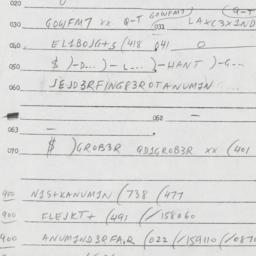 020
030 GOWFM7 xx Q-T GOWFM7) (Q-T
031 LAXC3X1ND
040 EL1BOJG+S (418 041 O
050 $ )-D...)-L...)-HANT )-G...
060 JEJD3RF1NG83R0TANUM1N
062 —
063 —
070 $ )GR0B3R QD1GR0B3R xx (401
900 N1S+KANUM1N (738 (477
900 ELEJKT+ (491 (/158060
900 ANUM1ND3RFA,R (022 (/159110 (/087